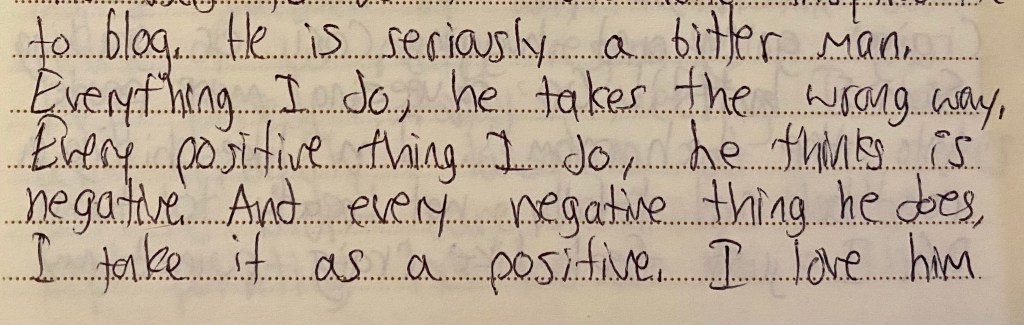 to blog. He is seriously a bitter man.
Everything I do, he takes the wrong way.
Every positive thing I do, he thinks is
negative. And every negative thing he does,
I take it as a positive. I love him